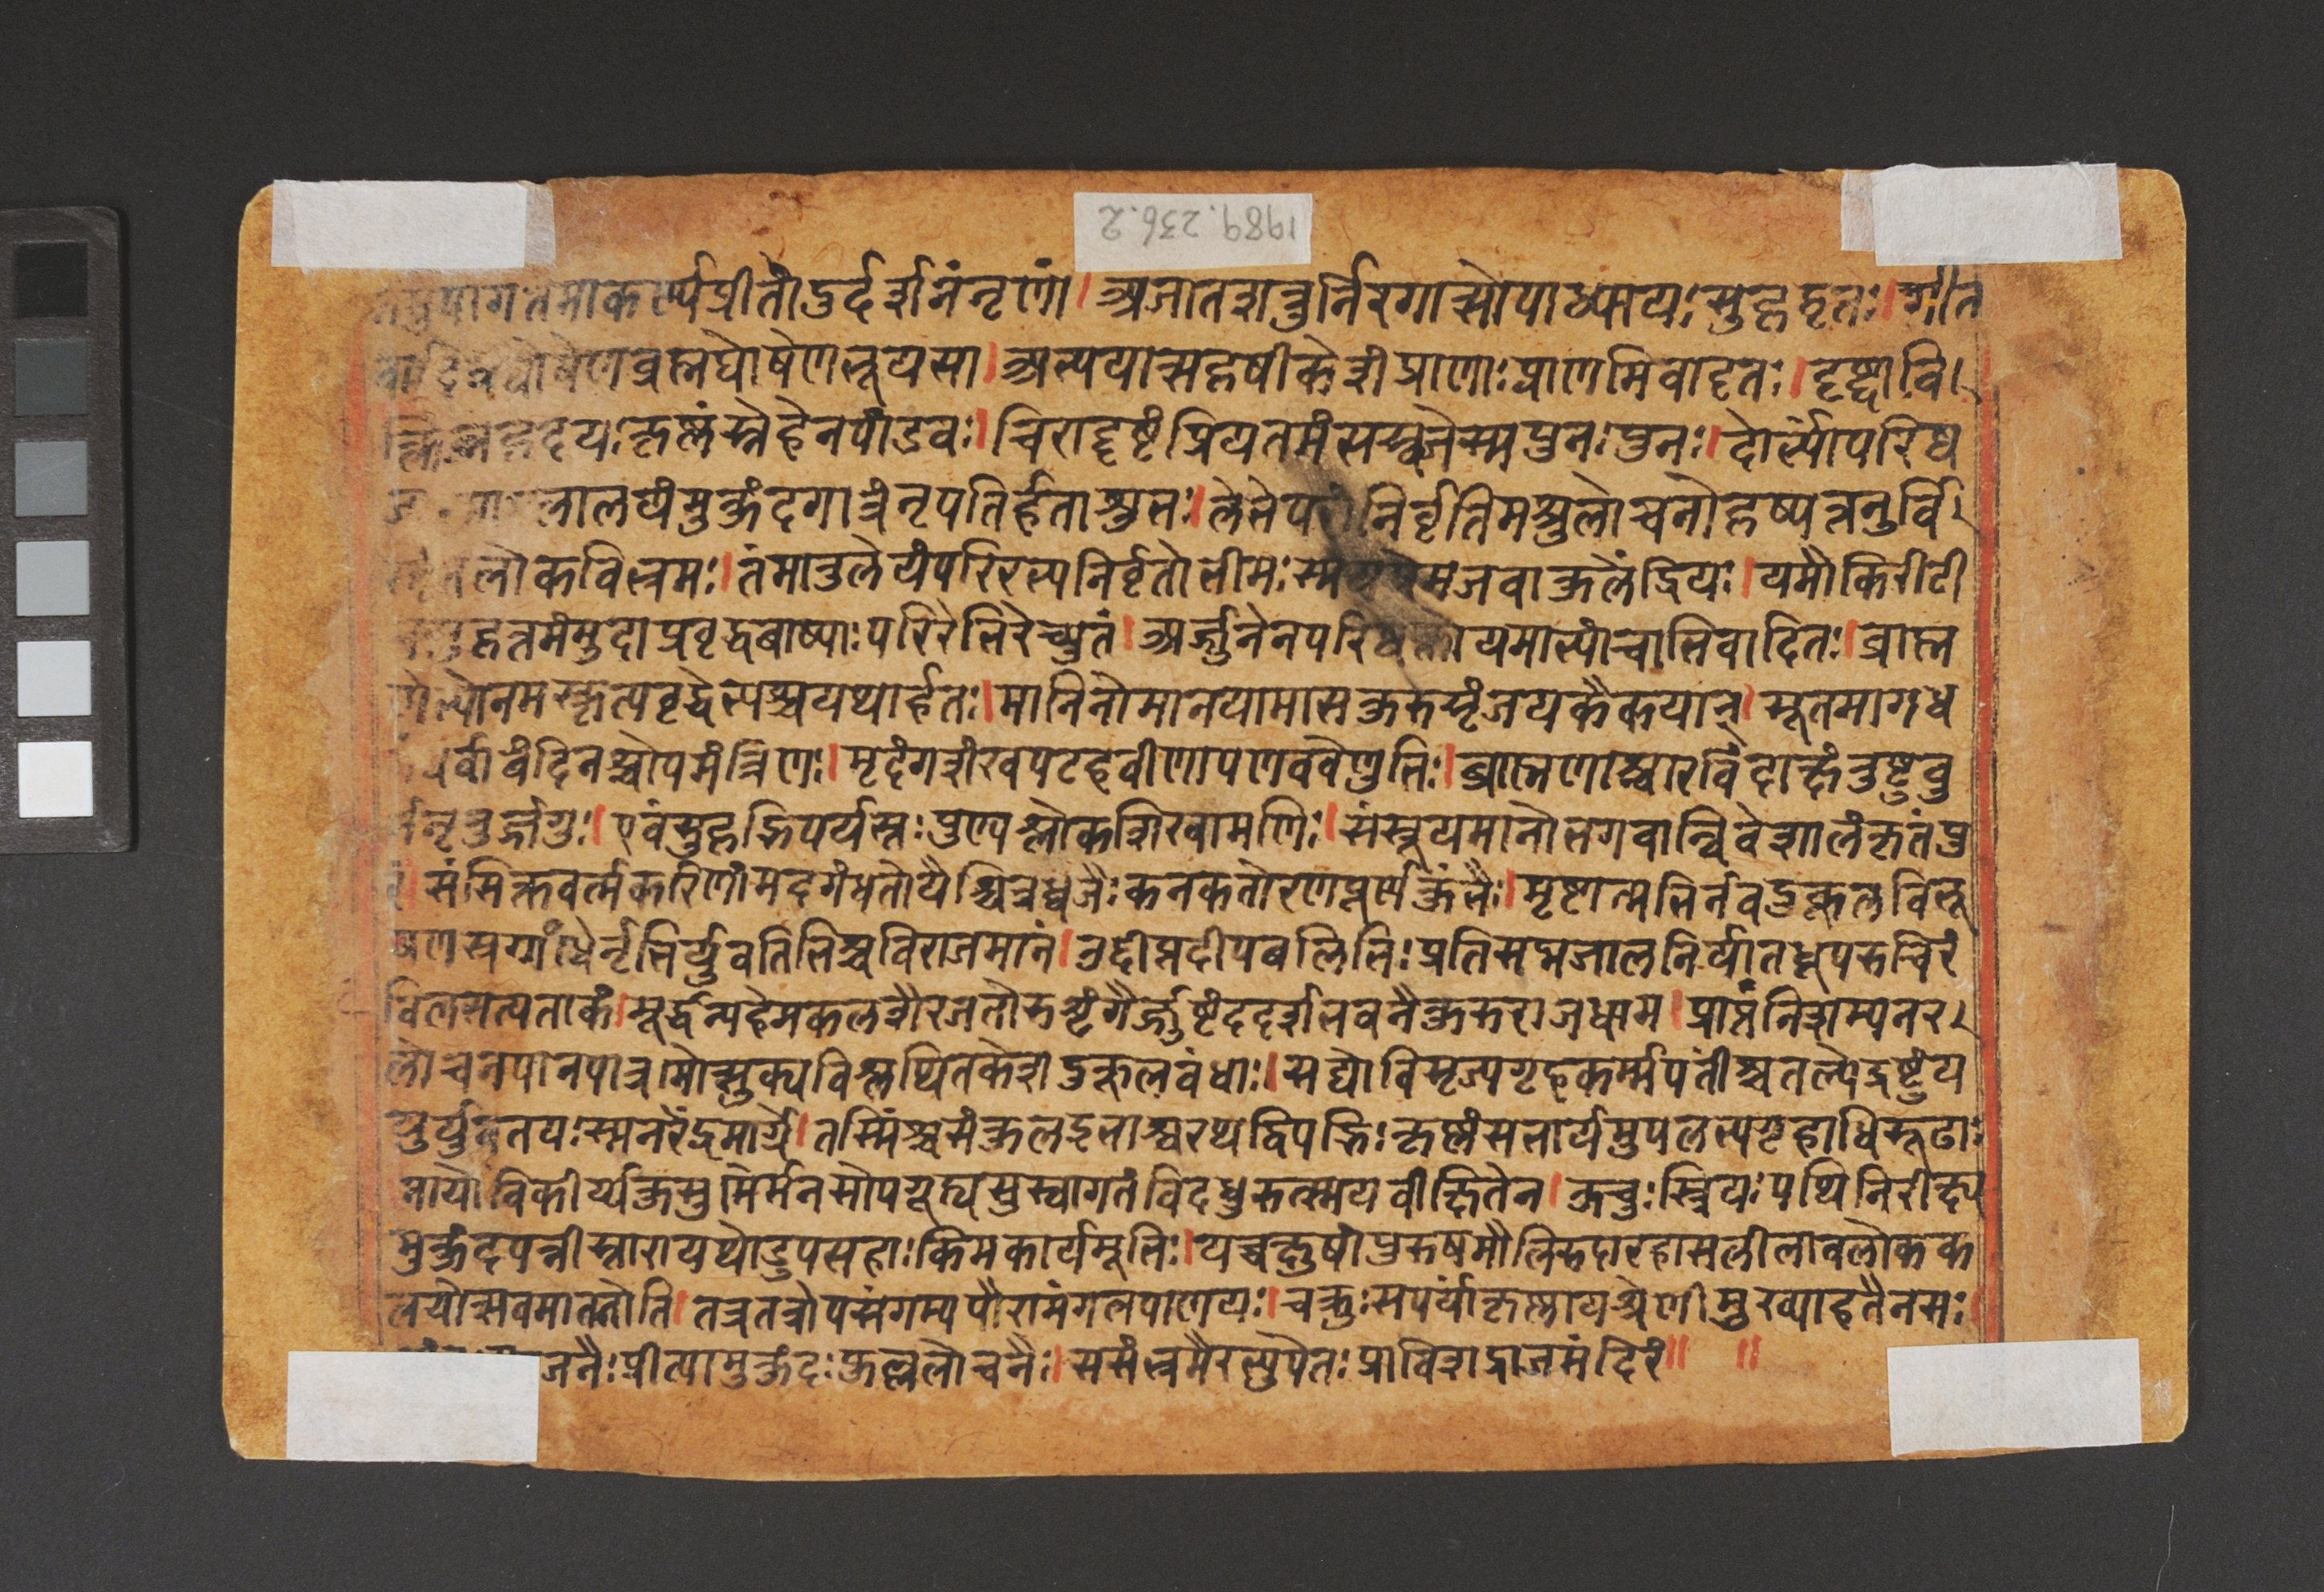 1989.236.2
तमुपागतमाकर्ण्यप्रीतोदुर्दर्शनंनृणां। अजातशत्रुर्निरगात्सोपाध्यायःसुहृद्वृतः। गीत
वादित्रघोषेणब्रह्मघोषेणभूयसा। अभ्ययात्सहृषीकेशंप्राणाःप्राणमिवादृतः। दृष्ट्वावि।
क्लिन्नहृदयःकृष्णंस्नेहेनपांडवः। चिराद्दृष्टंप्रियतमंसस्वजेस्मपुनःपुनः। दोर्भ्यांपरिष्व
लालयंमुकुंदगात्रंनृपतिर्हताशुभः। लेभेपरांनिर्वृतिमश्रुलोचनोहृष्यत्तनुर्वि।
स्मृतलोकविभ्रमः। तंमातुलेयंपरिरभ्यनिर्वृतोभीमःस्मयन्प्रेमजवाकुलेंद्रियः। यमौकिरीटी
चसुहृत्तमंमुदाप्रवृद्धबाष्पाःपरिरेभिरेच्युतं। अर्जुनेनपरिष्वक्तोयमाभ्यांचाभिवादितः। ब्राह्म
णेभ्योनमस्कृत्यवृद्धेभ्यश्चयथार्हतः। मानिनोमानयामासकुरुसृंजयकैकयान्। सूतमागध
गंधर्वावंदिनश्चोपमंत्रिणः। मृदंगशंखपटहवीणापणववेणुभिः। ब्राह्मणाश्चारविंदाक्षंतुष्टुवु
र्ननृतुर्जगुः। एवंसुहृद्भिपर्यस्तःपुण्यश्लोकशिखामणिः। संस्तूयमानोभगवान्विवेशालंकृतंपु
रं। संसिक्तवर्त्मकरिणांमदगंधतोयैश्चित्रध्वजैःकनकतोरणपूर्णकुंभैः। मृष्टात्मभिर्नवदुकूलविभू
षणस्रग्गंधैर्नृभिर्युवतिभिश्चविराजमानं। उद्दीप्तदीपबलिभिःप्रतिसद्मजालनिर्यातधूपरुचिरं
विलसत्पताकं। मूर्द्धन्यहेमकलशैरजतोरुशृंगैर्जुष्टंददर्शभवनैकुरुराजधाम। प्राप्तंनिशम्यनर।
लोचनपानपात्रमौत्सुक्यविश्लथितकेशदुकूलबंधाः। सद्योविसृज्यगृहकर्म्मपतींश्चतल्पेद्रष्टुंय
युर्युवतयःस्मनरेंद्रमार्गे। तस्मिंश्चसंकुलइभाश्वरथद्विपद्भिःकृष्णंसभार्यमुपलभ्यगृहाधिरूढाः
नार्योविकीर्य्यकुसुमैर्मनसोपगूह्यसुस्वागतंविदधुरुत्स्मयवीक्षितेन। ऊचुःस्त्रियःपथिनिरीक्ष्य
मुकुंदपत्नीस्तारायथोडुपसहाःकिमकार्यमूभिः। यच्चक्षुषांपुरुषमौलिरुदारहासलीलावलोकक
लयोत्सवमातनोति। तत्रतत्रोपसंगम्यपौरामंगलपाणयः। चक्रुःसपर्यांकृष्णायश्रेणीमुख्याहतैनसः
जनैःप्रीत्यामुकुंदःफुल्ललोचनैः। ससंभ्रमैरभ्युपेतःप्राविशद्राजमंदिरं॥ ॥